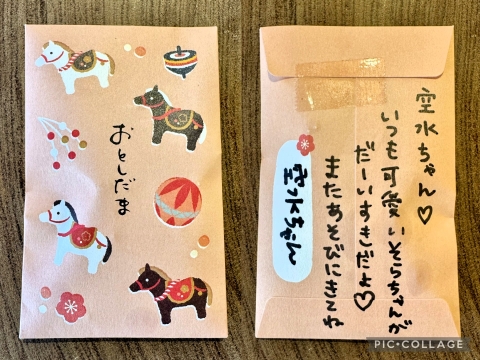 おとしだま
空水ちゃん♡
いつも可愛いそらちゃんが
だーいすきだよ♡
またあそびにきてね
空水ちゃん
PIC•COLLAGE